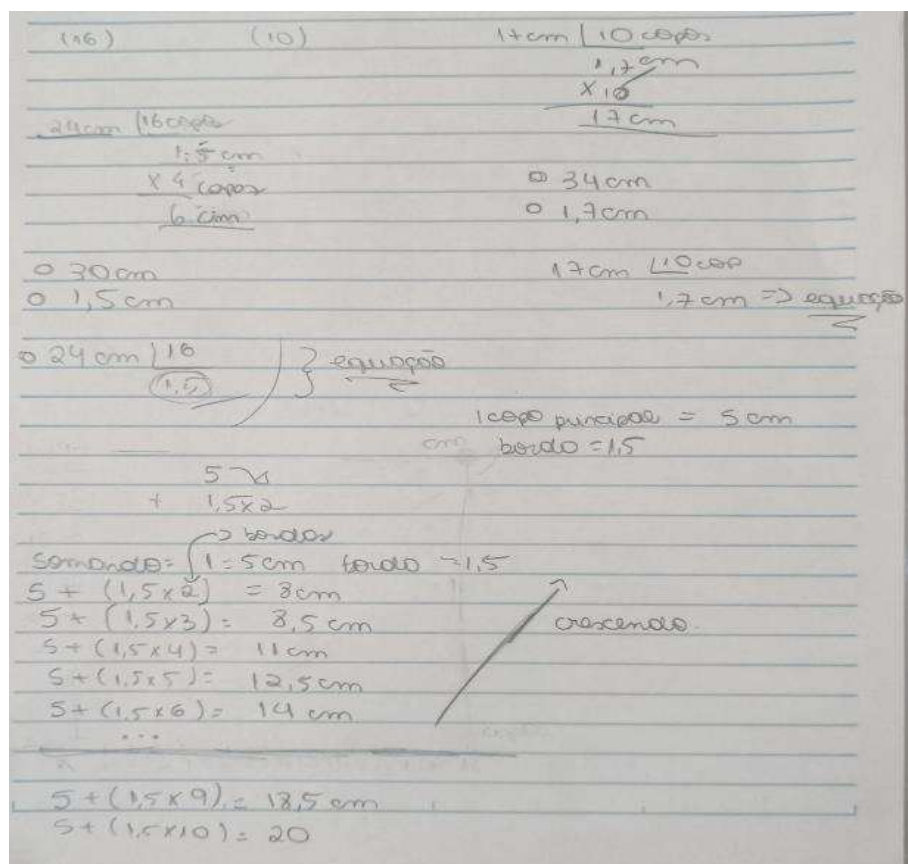 (16) (10) 17cm | 10 copos
1,7cm
x 10
17 cm
24cm | 16 copos
1,5 cm
x 4 copos
6 cm
o 34cm
o 1,7cm
o 30cm
o 1,5cm
17cm | 10 cop
1,7 cm => equação
o 24 cm | 16
1,5
} equação
1 copo principal = 5 cm
bordo = 1,5
cm
5
+ 1,5x2
-> bordos
Somando: 1 = 5cm bordo = 1,5
5 + (1,5 x 2) = 8cm
5 + (1,5x3) = 8,5 cm
5 + (1,5 x 4) = 11 cm
5 + (1,5x5) = 12,5 cm
5 + (1,5 x 6) = 14 cm
...
crescendo.
5 + (1,5 x 9) = 18,5 cm
5 + (1,5x10) = 20